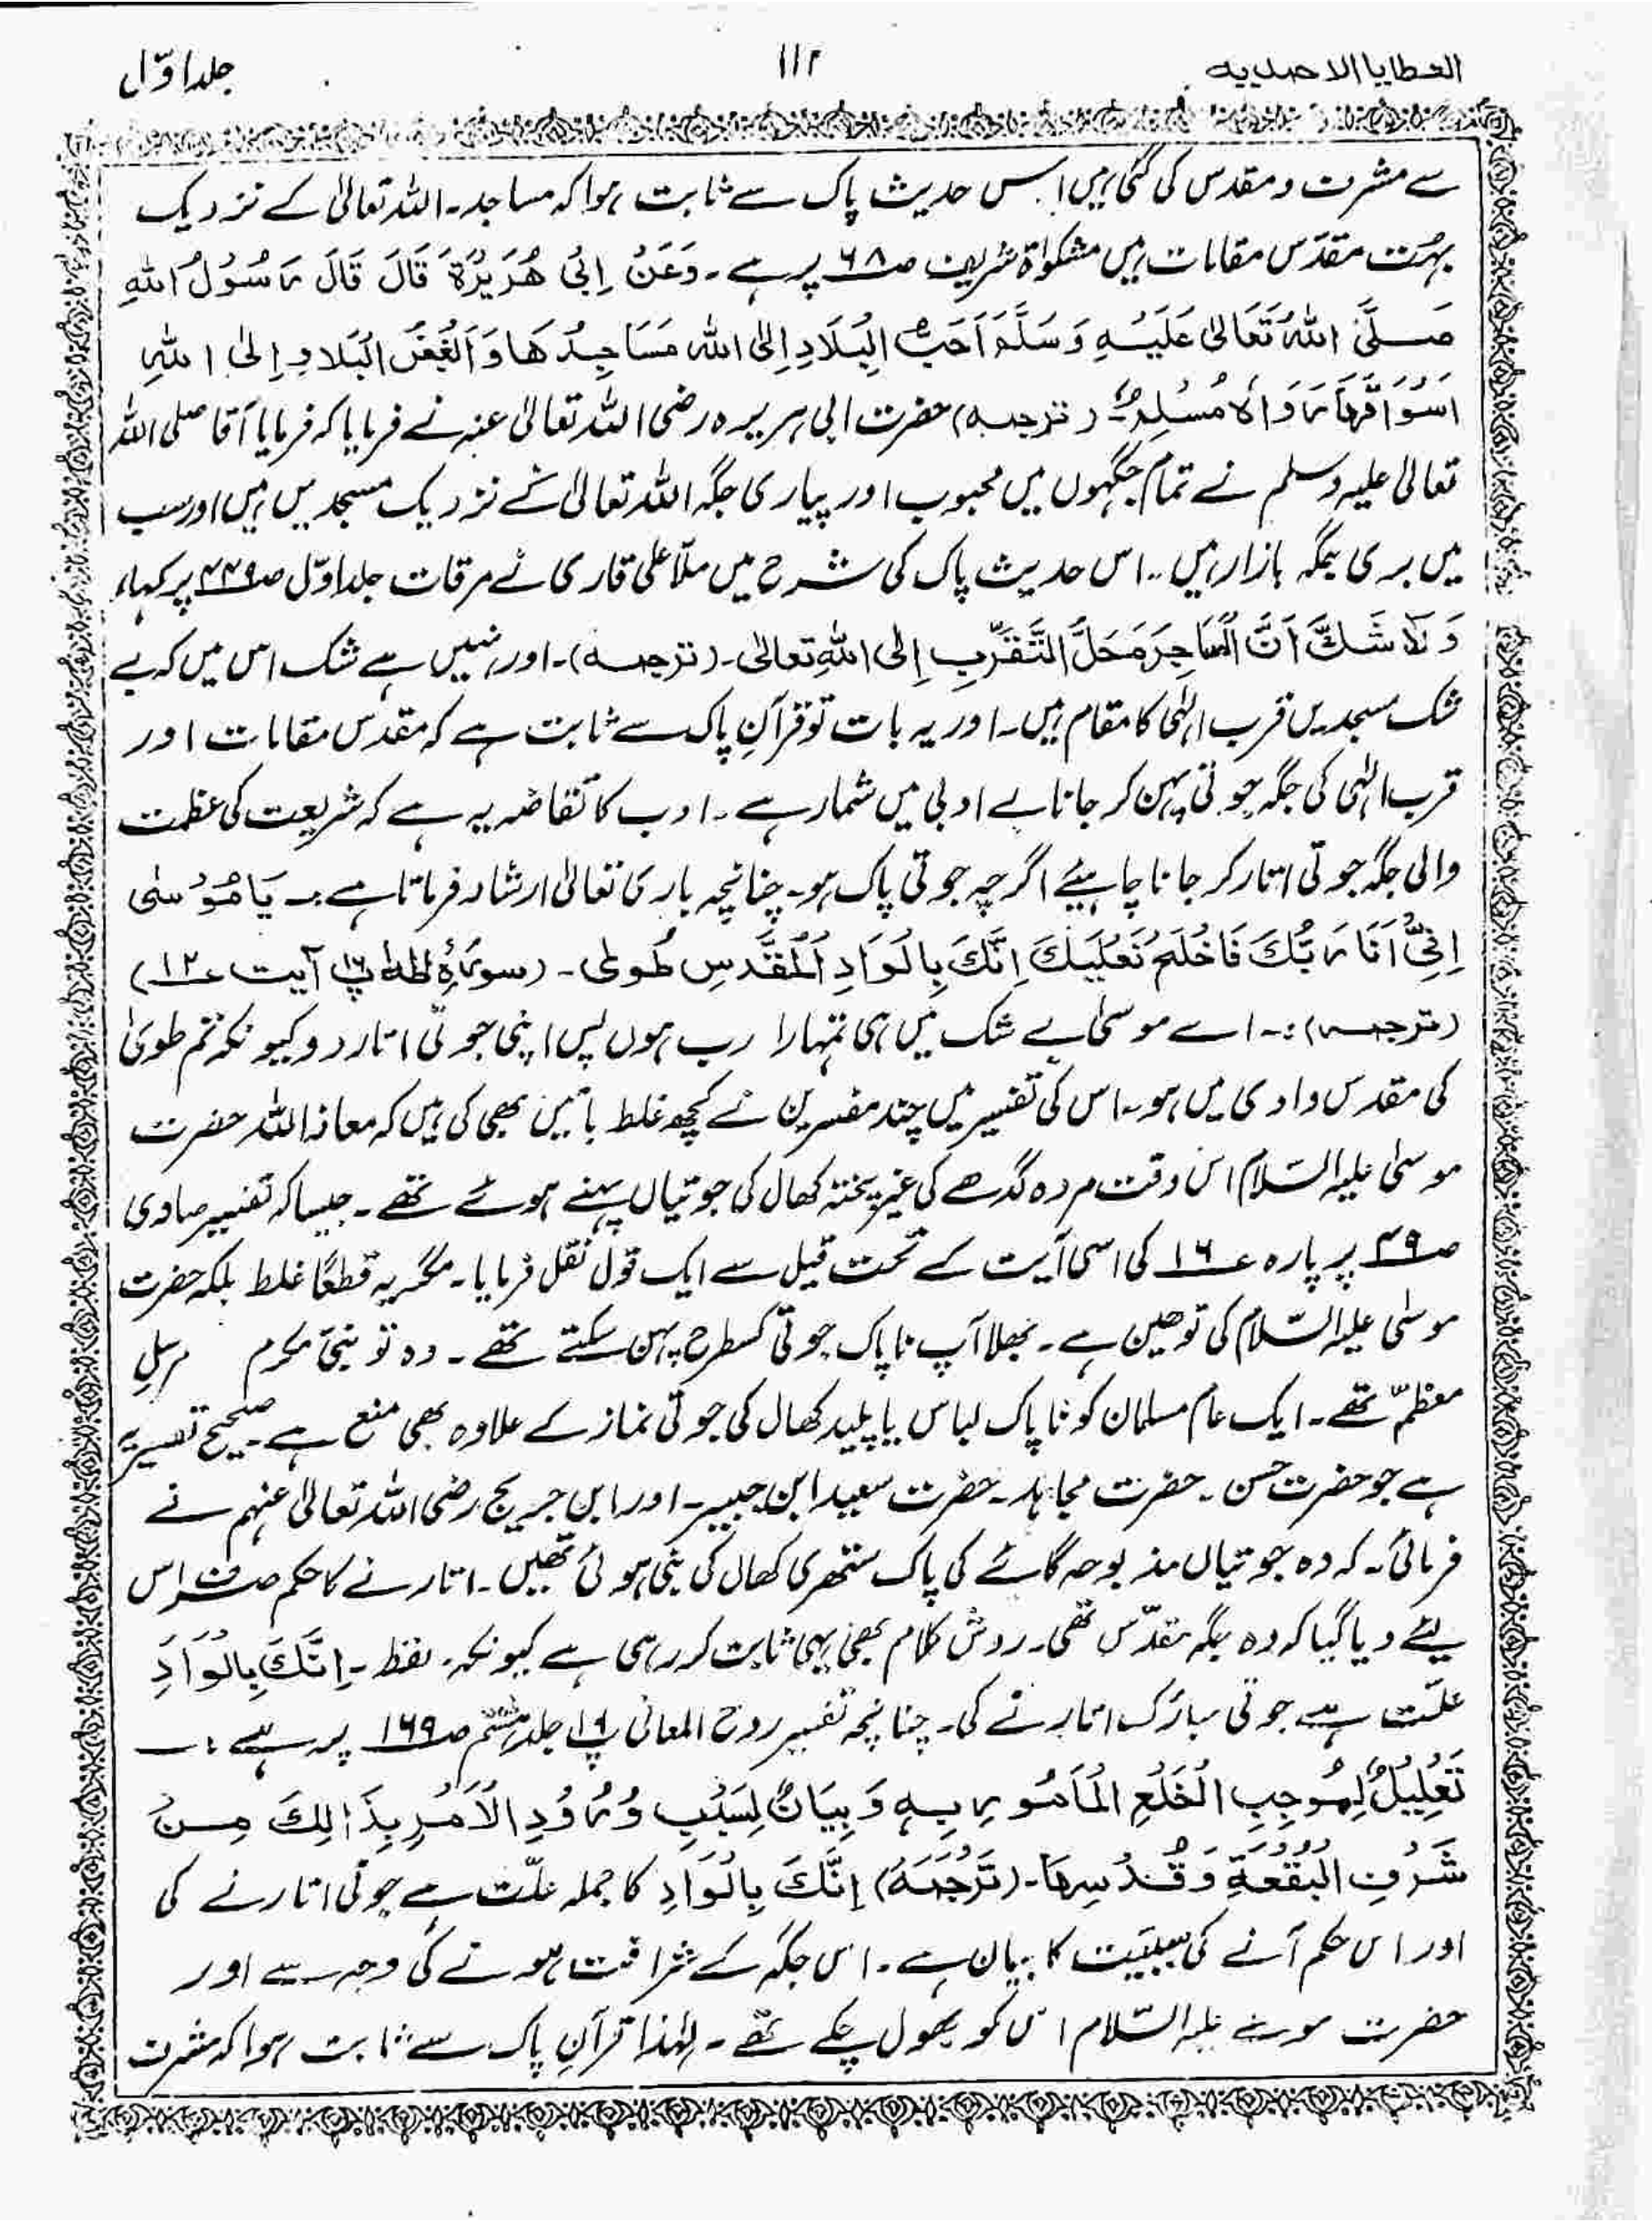 العطایا الاحمدیه
۱۱۲
جلد اوّل
سے مشرف و مقدس کی گئی ہیں اس حدیث پاک سے ثابت ہوا کہ مساجد۔ اللہ تعالیٰ کے نزدیک
بہُت مقدّس مقامات ہیں مشکوٰۃ شریف صـ۶۸ پر ہے۔ وَعَنْ اِبِیْ ھُرَیْرَۃَ قَالَ قَالَ رَسُوْلُ اللہِ
صَلَّی اللہُ تَعَالیٰ عَلَیْہِ وَسَلَّمَ اَحَبُّ الْبِلَادِ اِلیَ اللہ مَسَاجِدُھَا وَ اَبْغَضُ الْبَلَادِ اِلیَ اللہِ
اَسْوَاقُھَا رَوَاہُ مُسْلِمٌ۔ (ترجمہ) حضرت ابی ہریرہ رضی اللہ تعالیٰ عنہ نے فرمایا کہ فرمایا آقا صلی اللہ
تعالیٰ علیہ وسلم نے تمام جگہوں میں محبوب اور پیاری جگہ اللہ تعالیٰ کے نزدیک مسجدیں ہیں اور سب
میں بری جگہ بازار ہیں۔۔ اس حدیث پاک کی شرح میں ملّا علی قاری نے مرقات جلد اوّل صـ۴۴۹ پر کہا،
وَلَا شَکَّ اَنَّ الْمَسَاجِدَ مَحَلُّ التَّقَرُّبِ اِلیَ اللہِ تعالیٰ۔ (ترجمہ)۔ اور نہیں ہے شک اس میں کہ بے
شک مسجدیں قرب الٰہی کا مقام ہیں۔ اور یہ بات تو قرآنِ پاک سے ثابت ہے کہ مقدّس مقامات اور
قرب الٰہی کی جگہ جوتی پہن کر جانا بے ادبی میں شمار ہے۔ ادب کا تقاضہ یہ ہے کہ شریعت کی عظمت
والی جگہ جوتی اتار کر جانا چاہیئے اگرچہ جوتی پاک ہو۔ چنانچہ باری تعالیٰ ارشاد فرماتا ہے:۔ یَا مُوْسٰی
اِنِّیْ اَنَا رَبُّکَ فَاخْلَعْ نَعْلَیْکَ اِنَّکَ بِالْوَادِ الْمُقَدَّسِ طُویٰ۔ (سورۂ طٰہٰ پ۱۶ آیت ؏۱۲)
(ترجمہ):۔ اے موسیٰ بے شک میں ہی تمہارا رب ہوں پس اپنی جوتی اتار دو کیونکہ تم طویٰ
کی مقدس وادی میں ہو۔ اس کی تفسیر میں چند مفسرین نے کچھ غلط باتیں بھی کی ہیں کہ معاذ اللہ حضرت
موسیٰ علیہ السّلام اس وقت مردہ گدھے کی غیر پختہ کھال کی جوتیاں پہنے ہوئے تھے۔ جیسا کہ تفسیر صاوی
صـ۴۹ پر پارہ ؏۱۶ کی اسی آیت کے تحت قیل سے ایک قول نقل فرمایا۔ مگر یہ قطعًا غلط بلکہ حضرت
موسیٰ علیہ السّلام کی توھین ہے۔ بھلا آپ ناپاک جوتی کسطرح پہن سکتے تھے۔ وہ تو نبیّ مکرم مرسلِ
معظمّ تھے۔ ایک عام مسلمان کو ناپاک لباس یا پلید کھال کی جوتی نماز کے علاوہ بھی منع ہے۔ صحیح تفسیر یہ
ہے جو حضرت حسن۔ حضرت مجاہد۔ حضرت سعید ابن جبیر۔ اور ابن جریج رضی اللہ تعالیٰ عنہم نے
فرمائی۔ کہ وہ جوتیاں مذبوحہ گائے کی پاک ستھری کھال کی بنی ہوئی تھیں۔ اتارنے کا حکم صرف اس
لیئے دیا گیا کہ وہ جگہ مقدّس تھی۔ روش کلام بھی یہی ثابت کر رہی ہے کیونکہ۔ لفظ۔ اِنَّکَ بِالْوَادِ
علّت ہے جوتی مبارک اتارنے کی۔ چنانچہ تفسیر روح المعانی پ۱۶ جلد ہشتم صـ۱۶۹ پر ہے:۔
تَعْلِیْلٌ لِمُوْجِبِ الْخَلْعِ الْمَاْمُوْرِ بِہٖ وَ بِیَانٌ لِسَبَبِ وُرُوْدِ الْاَمْرِ بِذٰالِکَ مِنْ
شَرْفِ الْبُقْعَۃِ وَ قُدْسِھَا۔ (تَرْجُمَہُ) اِنَّکَ بِالْوَادِ کا جملہ علّت ہے جوتی اتارنے کی
اور اس حکم آنے کی سببیت کا بیان ہے۔ اس جگہ کے شرافت ہونے کی وجہ سے اور
حضرت موسےٰ علیہ السّلام اس کو بھول چکے تھے۔ لہٰذا قرآنِ پاک سے ثابت ہوا کہ مشرف